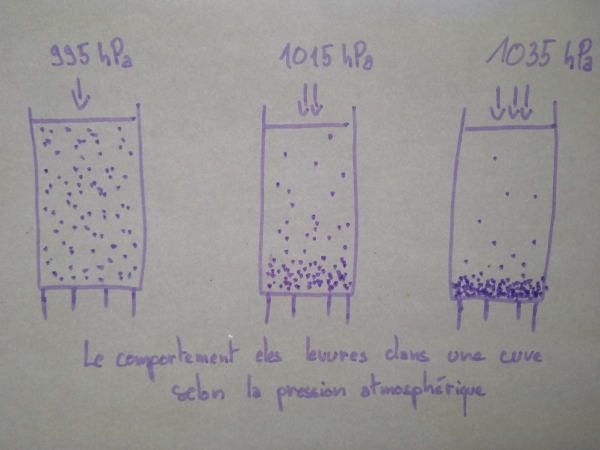 995 hPa
1015 hPa
1035 hPa
Le comportement des levures dans une cuve
selon la pression atmosphérique